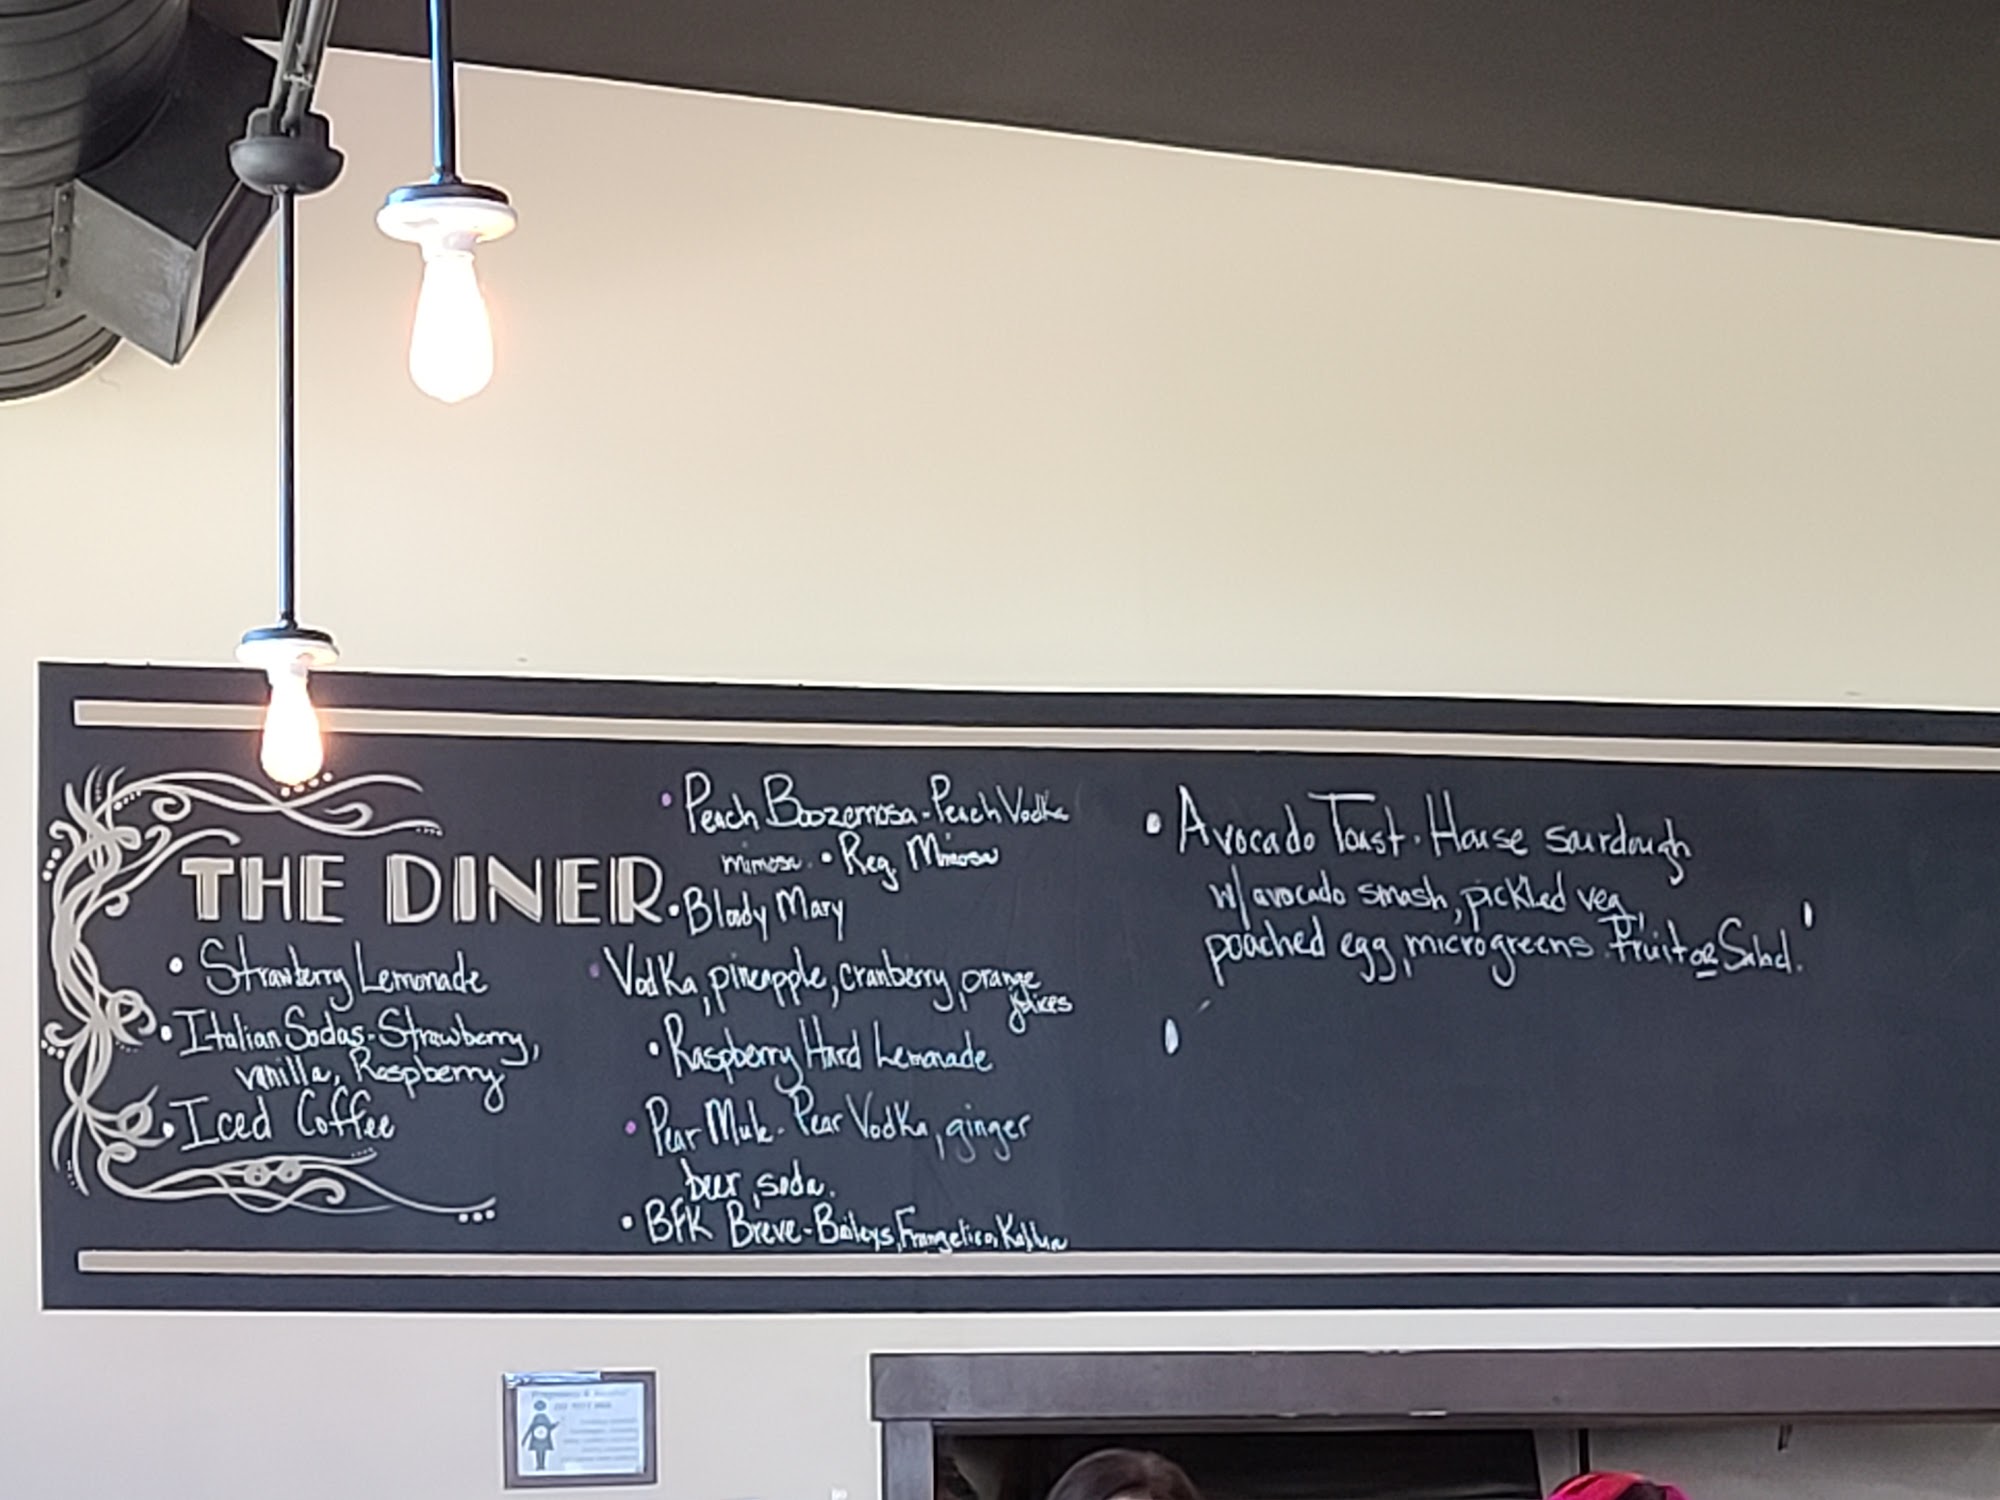 THE DINER
• Strawberry Lemonade
• Italian Sodas - Strawberry,
vanilla, Raspberry
• Iced Coffee
• Peach Boozemosa - Peach Vodka
mimosa. • Reg Mimosa
• Bloody Mary
• Vodka, pineapple, cranberry, orange
juices
• Raspberry Hard Lemonade
• Pear Mule - Pear Vodka, ginger
beer, soda.
• BFK Breve - Baileys, Frangelico, Kahlua
• Avocado Toast. House sourdough
w/ avocado smash, pickled veg,
poached egg, microgreens. Fruit or Salad.